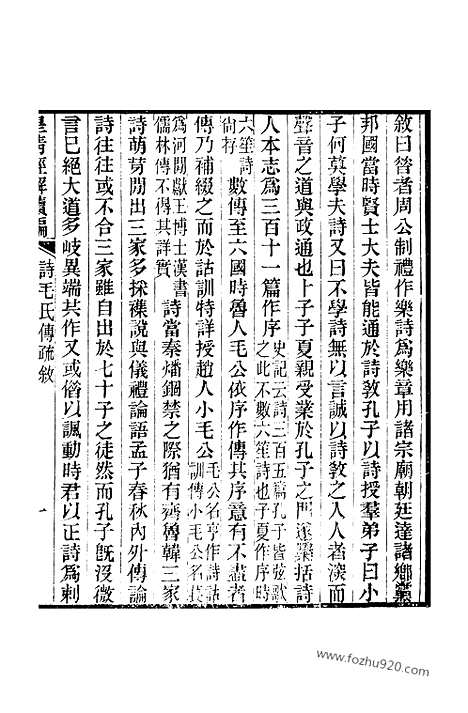 敘曰昔者周公制禮作樂詩爲樂章用諸宗廟朝廷達諸鄉黨
邦國當時賢士大夫皆能通於詩敎孔子以詩授羣弟子曰小
子何莫學夫詩又曰不學詩無以言誠以詩敎之入人者深而
聲音之道與政通也卜子子夏親受業於孔子之門遂櫽括詩
人本志爲三百十一篇作序史記云詩三百五篇孔子皆弦歌之此不數六笙詩也子夏作序時
六笙詩尚存數傳至六國時魯人毛公依序作傳其序意有不盡者
傳乃補綴之而於詁訓特詳授趙人小毛公毛公名亨作詩詁訓傳小毛公名萇
爲河閒獻王博士漢書儒林傳不得其詳實詩當秦燔錮禁之際猶有齊魯韓三家
詩萌芽閒出三家多採襍說與儀禮論語孟子春秋內外傳論
詩往往或不合三家雖自出於七十子之徒然而孔子旣沒微
言已絕大道多岐異端共作又或借以諷動時君以正詩爲刺
皇清經解續編 詩毛氏傳疏敘 一
www.fozhu920.com